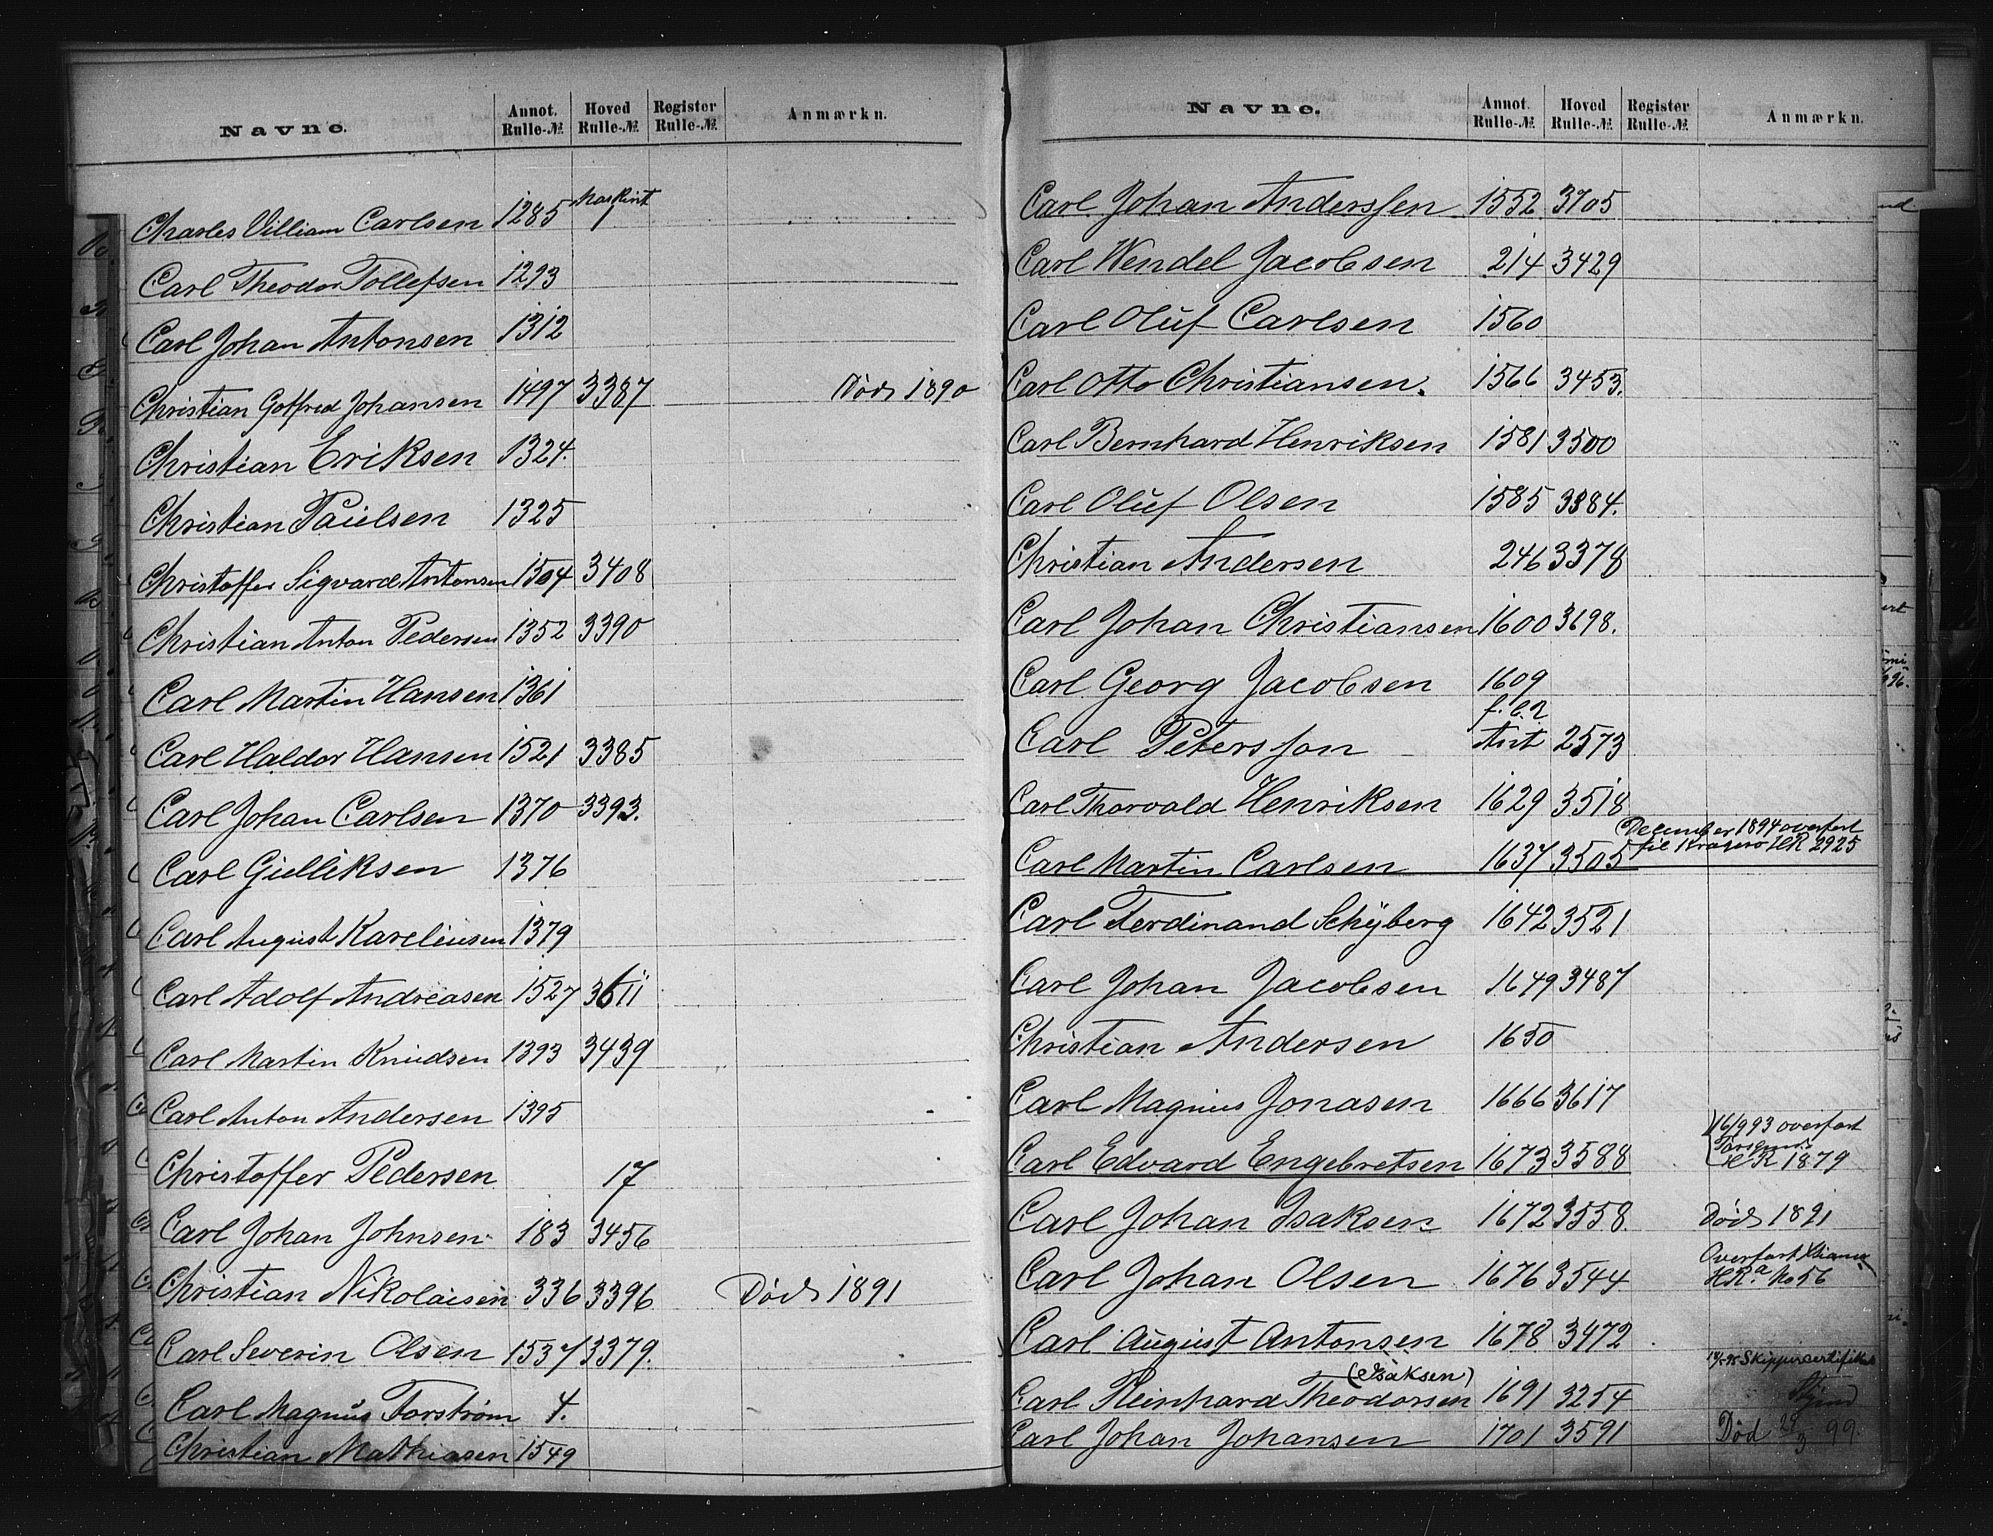 Navne. Annot. Rulle-№ Hoved Rulle-№ Register Rulle-№ Anmærkn.
Charles Villiam Carlsen 1285 Maskint 1
Carl Theodor Tollefsen 1293
Carl Johan Antonsen 1312
Christian Gotfred Johansen 1497 3387 Død 1890
Christian Eriksen 1324.
Christian Paulsen 1325
Christoffer Sigvard Antonsen 1504 3408
Christian Anton Pedersen 1352 3390
Carl Martin Hansen 1361
Carl Haldor Hansen 1521 3385
Carl Johan Carlsen 1370 3393.
Carl Gulliksen 1376
Carl August Kareliusen 1379
Carl Adolf Andreasen 1527 3611
Carl Martin Knudsen 1393 3439
Carl Anton Andersen 1395
Christoffer Pedersen 17
Carl Johan Johnsen 183 3456
Christian Nikolaisen 336 3396 Død 1891
Carl Severin Olsen 1537 3379.
Carl Magnus Forström 4.
Christian Mathiasen 1549
Navne. Annot. Rulle-№ Hoved Rulle-№ Register Rulle-№ Anmærkn.
Carl Johan Anderssen 1552 3705
Carl Wendel Jacobsen 214 3429
Carl Oluf Carlsen 1560
Carl Otto Christiansen. 1566 3453.
Carl Bernhard Henriksen 1581 3500
Carl Oluf Olsen 1585 3384.
Christian Andersen 246 3378
Carl Johan Christiansen 1600 3698.
Carl Georg Jacobsen 1609
Carl Petersson Ant 2573
Carl Thorvald Henriksen 1629 3518
December 1894 overført
Carl Martin Carlsen 1637 3505 til Kragerø HR 2925
Carl Ferdinand Schÿberg 1642 3521
Carl Johan Jacobsen 1649 3487
Christian Andersen 1650
Carl Magnus Jonasen 1666 3617
16/9 93 overført
Carl Edvard Engebretsen 1673 3588 HR 1879
Carl Johan Isaksen 1672 3558. Død 1891
Overført Xiania
Carl Johan Olsen 1676 3544 HR. No 56
Carl August Antonsen 1678 3472
(Isaksen) Skippercertifikat
Carl Reinhard Theodorsen 1691 3254
Carl Johan Johansen 1701 3591 Død 28/3 99.